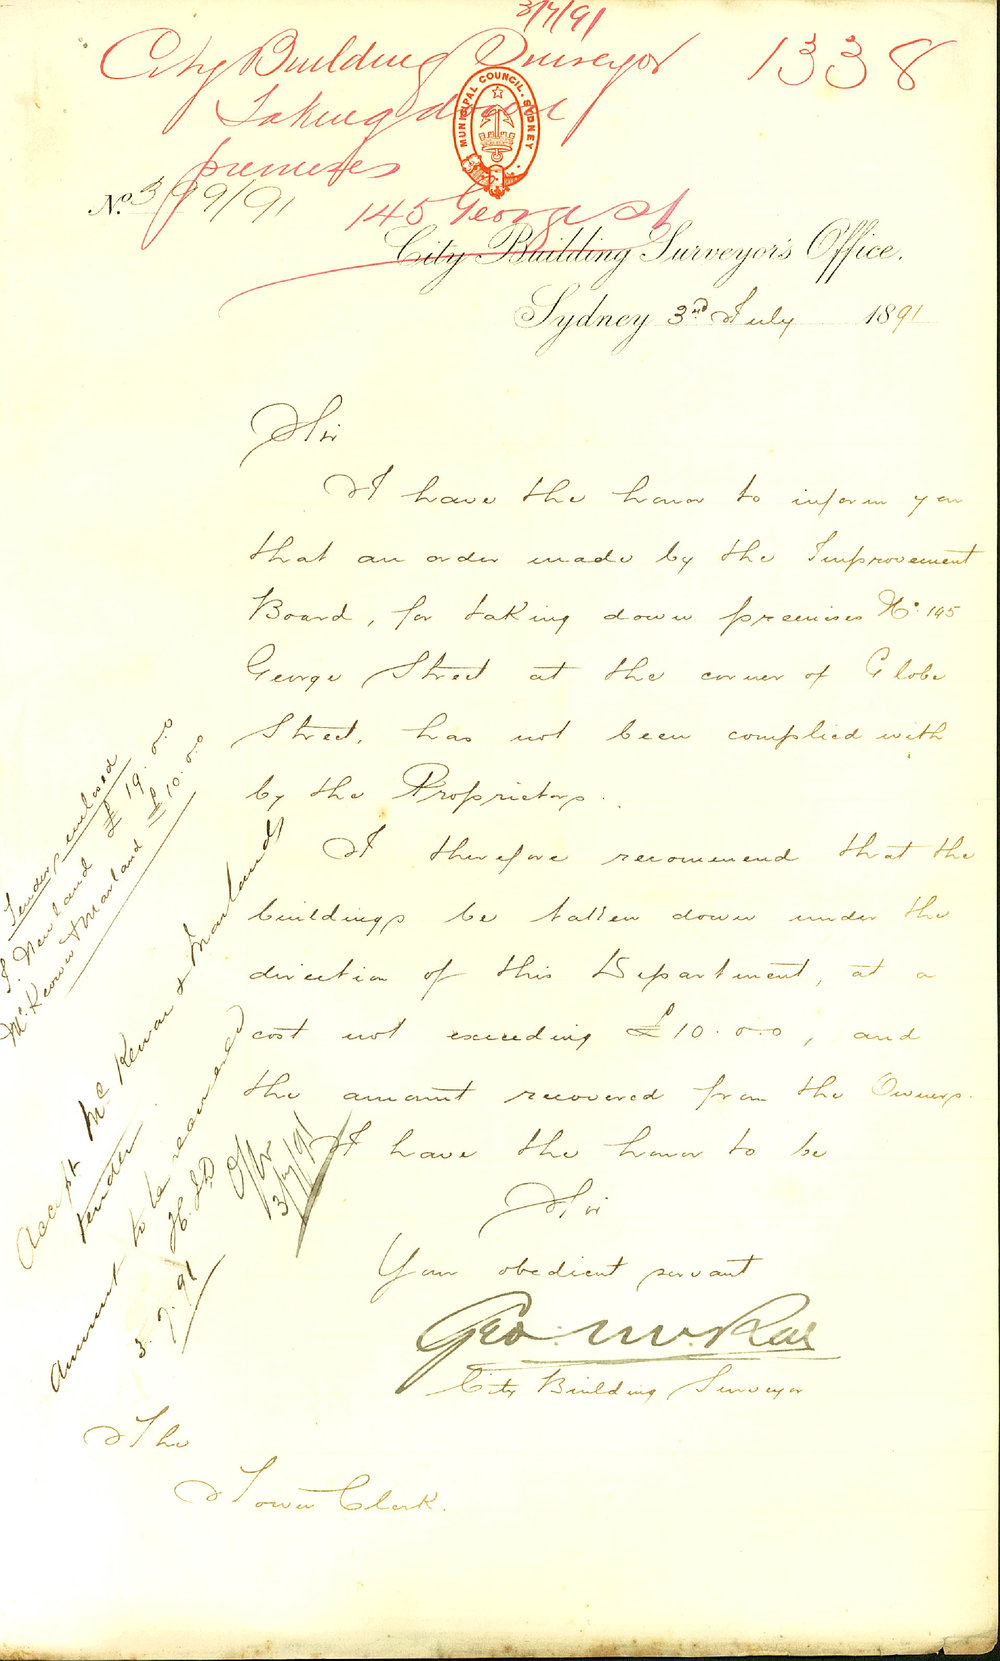 3/7/91
City Building Surveyor 1338
Taking down
premises
145 George St
MUNICIPAL COUNCIL. SYDNEY
No. 399/91
City Building Surveyor's Office.
Sydney 3rd July 1891
Sir
I have the honor to inform you
that an order made by the Improvement
Board, for taking down premises No. 145
George Street at the corner of Globe
Street, has not been complied with
by the Proprietors.
I therefore recommend that the
buildings be taken down under the
direction of this Department, at a
cost not exceeding £10.0.0, and
the amount recovered from the Owners.
I have the honor to be
Sir
Your obedient servant
Geo. McRae
City Building Surveyor
The
Town Clerk.
Tenders enclosed
Newland £19.0.0
McKeown & Marland £10.0.0
Accept McKewan & Marlands
tender
Amount to be recovered
3.7.91
3/7/91